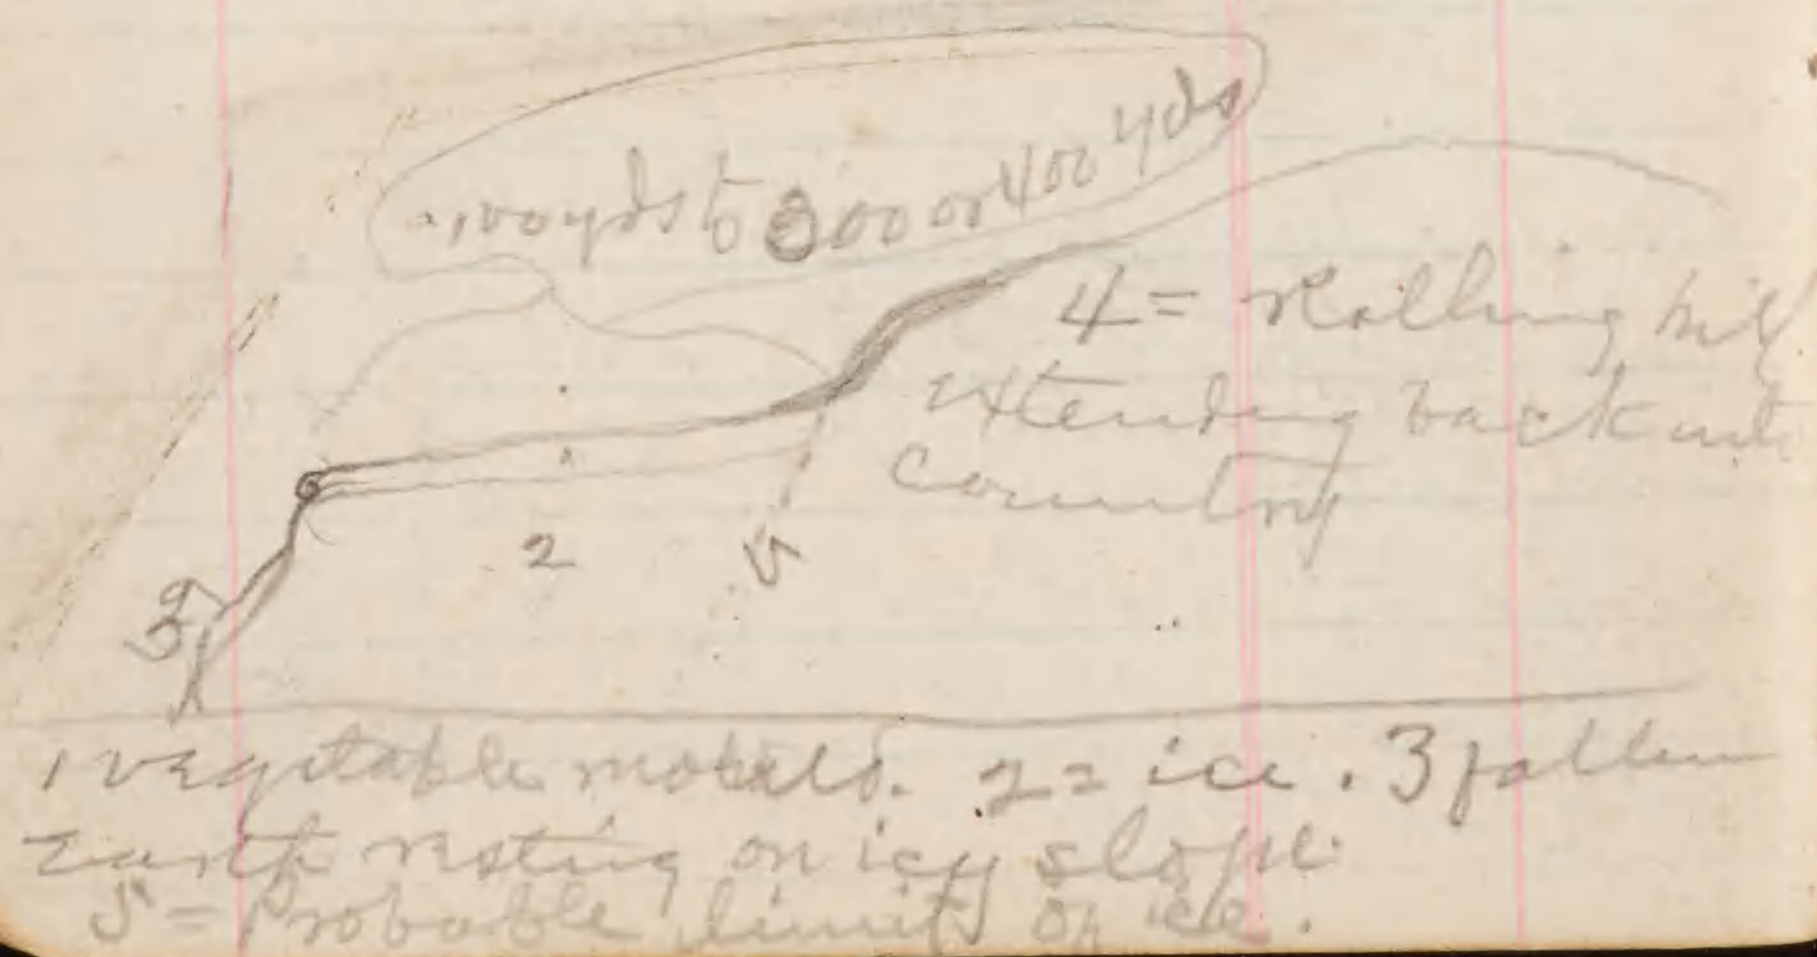 100 yds to 300 or 400 yds
4 = Rolling hil
extending back into
country
2
5
3
1 vegetable mould. 2 = ice. 3 fallen
Earth resting on icy slope.
5 = Probable limits of ice.